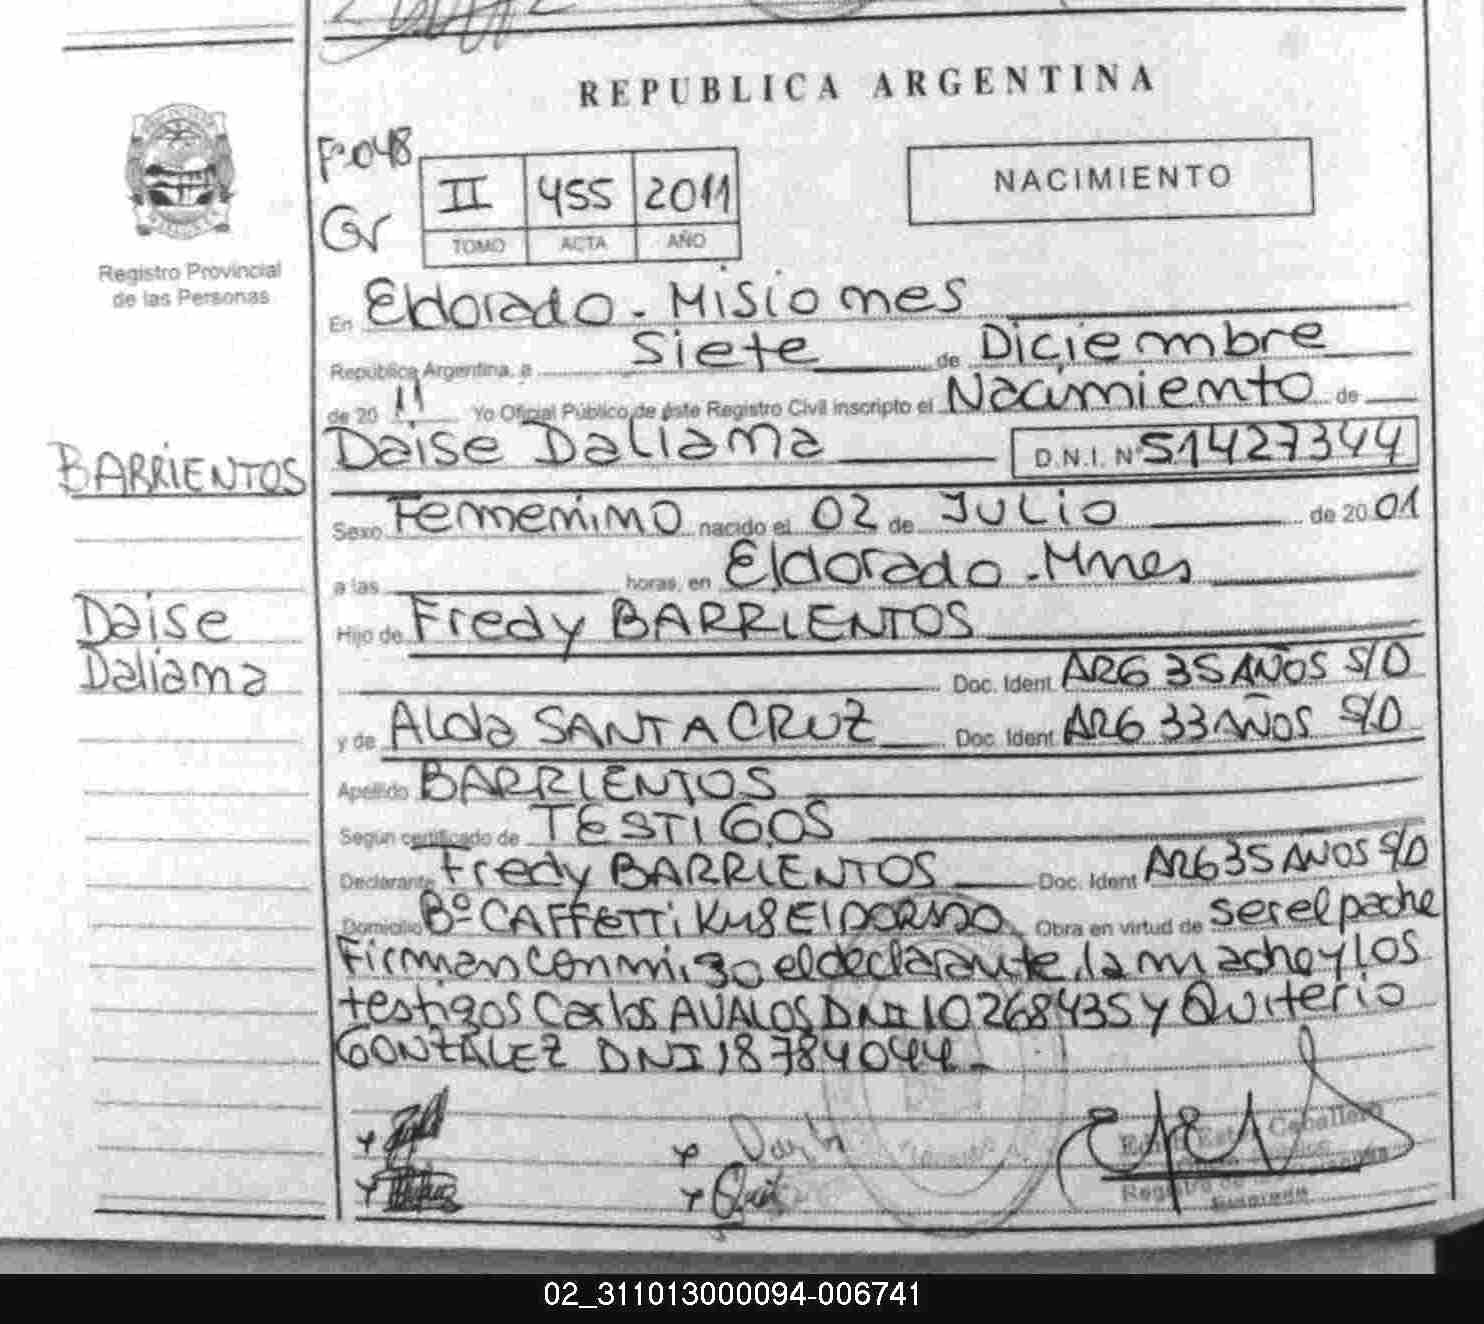 REPUBLICA ARGENTINA
Fº 048
Gr
II 455 2011
TOMO ACTA AÑO
NACIMIENTO
Registro Provincial
de las Personas
En Eldorado - Misiones
República Argentina, a Siete de Diciembre
de 20 11 Yo Oficial Público de éste Registro Civil inscripto el Nacimiento de
Daise Daliama D.N.I. Nº 51427344
BARRIENTOS
Sexo Femenino nacido el 02 de Julio de 20 01
a las horas, en Eldorado - Mnes
Daise
Daliama
Hijo de Fredy BARRIENTOS
Doc. Ident. ARG 35 AÑOS S/D
y de Alda SANTA CRUZ Doc. Ident. ARG 33 AÑOS S/D
Apellido BARRIENTOS
Según certificado de TESTIGOS
Declarante Fredy BARRIENTOS Doc. Ident ARG 35 AÑOS S/D
Domicilio Bº CAFFETTi KM8 ElDORADO Obra en virtud de ser el padre
Firman conmigo, el declarante, la madre y los
testigos Carlos AVALOS DNI 10268435 y Quiterio
GONZALEZ DNI 18784044 -
Caballero
02_311013000094-006741